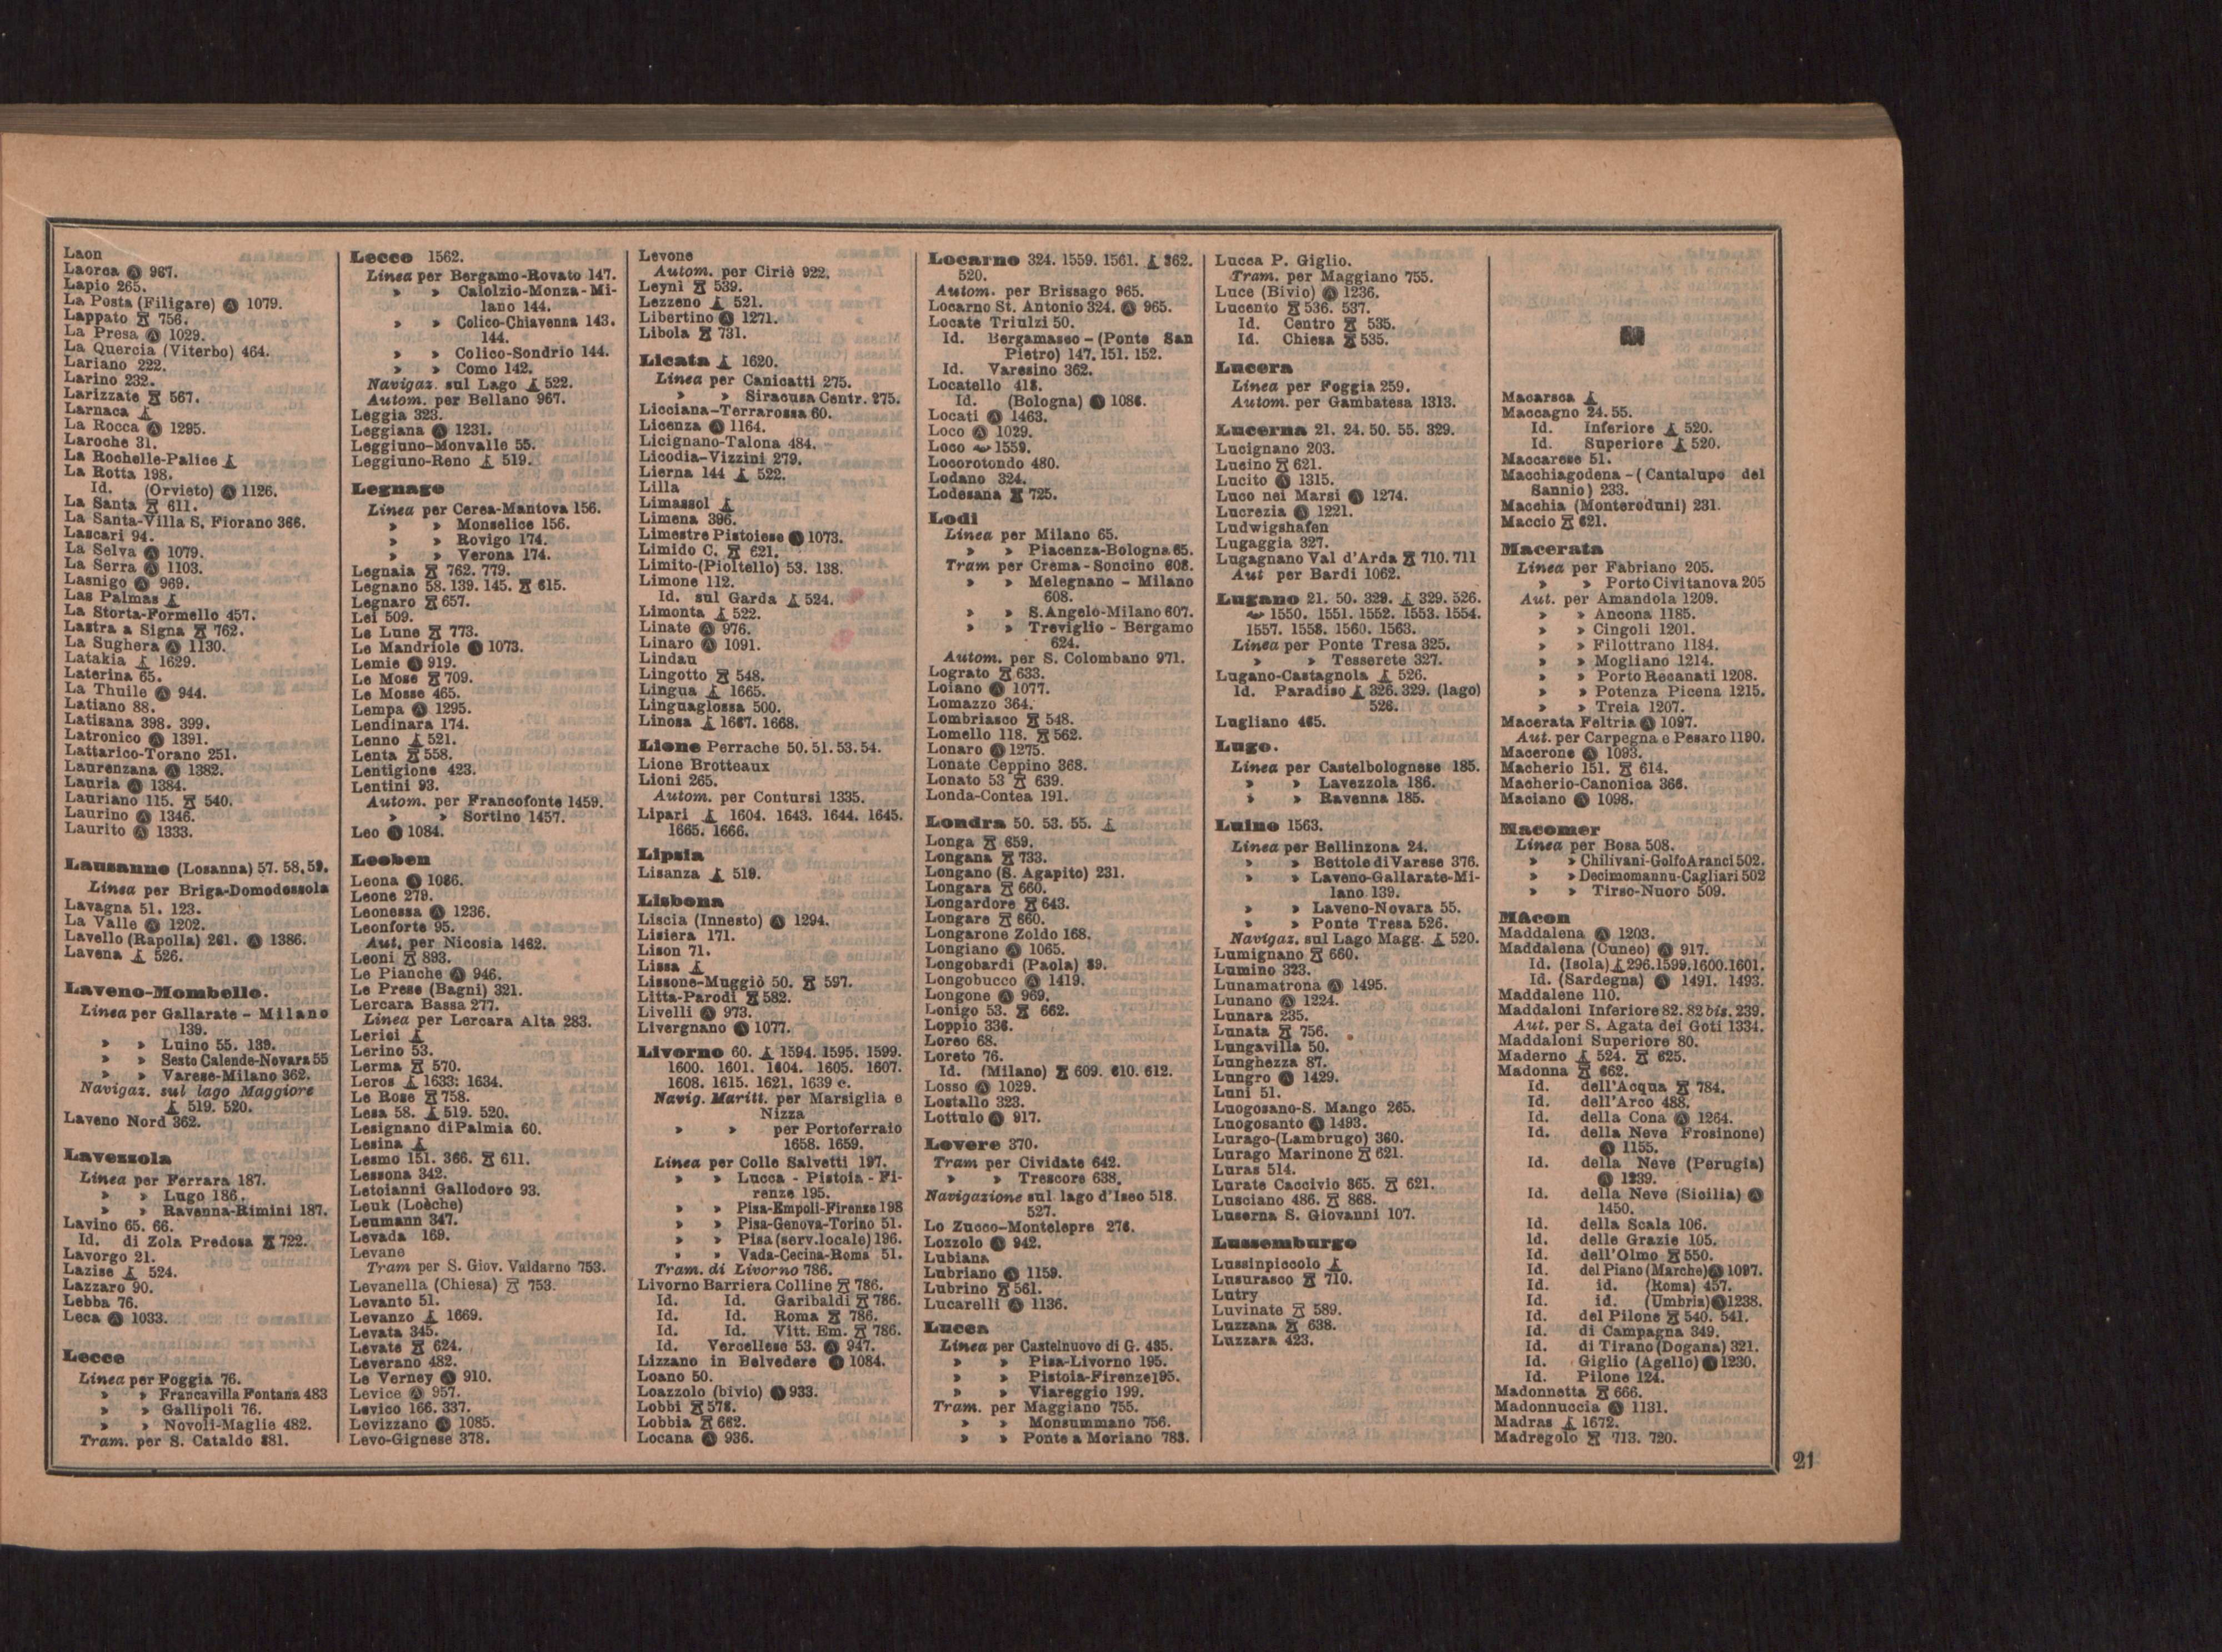 Laon
Laorca Ⓐ 967.
Lapio 265.
La Posta (Filigare) Ⓐ 1079.
Lappato 756.
La Presa Ⓐ 1029.
La Quercia (Viterbo) 464.
Lariano 222.
Larino 232.
Larizzate 567.
Larnaca
La Rocca Ⓐ 1295.
Laroche 31.
La Rochelle-Palice
La Rotta 198.
Id. (Orvieto) Ⓐ 1126.
La Santa 611.
La Santa-Villa S. Fiorano 366.
Lascari 94.
La Selva Ⓐ 1079.
La Serra Ⓐ 1103.
Lasnigo Ⓐ 969.
Las Palmas
La Storta-Formello 457.
Lastra a Signa 762.
La Sughera Ⓐ 1130.
Latakia 1629.
Laterina 65.
La Thuile Ⓐ 944.
Latiano 88.
Latisana 398. 399.
Latronico Ⓐ 1391.
Lattarico-Torano 251.
Laurenzana Ⓐ 1382.
Lauria Ⓐ 1384.
Lauriano 115. 540.
Laurino Ⓐ 1346.
Laurito Ⓐ 1333.
Lausanne (Losanna) 57. 58. 59.
Linea per Briga-Domodossola
Lavagna 51. 123.
La Valle Ⓐ 1202.
Lavello (Rapolla) 261. Ⓐ 1386.
Lavena 526.
Laveno-Mombello.
Linea per Gallarate - Milano
139.
» » Luino 55. 139.
» » Sesto Calende-Novara 55
» » Varese-Milano 362.
Navigaz. sul lago Maggiore
519. 520.
Laveno Nord 362.
Lavezzola
Linea per Ferrara 187.
» » Lugo 186.
» » Ravenna-Rimini 187.
Lavino 65. 66.
Id. di Zola Predosa 722.
Lavorgo 21.
Lazise 524.
Lazzaro 90.
Lebba 76.
Leca Ⓐ 1033.
Lecce
Linea per Foggia 76.
» » Francavilla Fontana 483
» » Gallipoli 76.
» » Novoli-Maglie 482.
Tram. per S. Cataldo 881.
Lecco 1562.
Linea per Bergamo-Rovato 147.
» » Calolzio-Monza-Mi-
lano 144.
» » Colico-Chiavenna 143.
144.
» » Colico-Sondrio 144.
» » Como 142.
Navigaz. sul Lago 522.
Autom. per Bellano 967.
Leggia 323.
Leggiana Ⓐ 1231.
Leggiuno-Monvalle 55.
Leggiuno-Reno 519.
Legnago
Linea per Cerea-Mantova 156.
» » Monselice 156.
» » Rovigo 174.
» » Verona 174.
Legnaia 762. 779.
Legnano 58. 139. 145. 615.
Legnaro 657.
Lei 509.
Le Lune 773.
Le Mandriole Ⓐ 1073.
Lemie Ⓐ 919.
Le Mose 709.
Le Mosse 465.
Lempa Ⓐ 1295.
Lendinara 174.
Lenno 521.
Lenta 558.
Lentigione 423.
Lentini 93.
Autom. per Francofonte 1459.
» » Sortino 1457.
Leo Ⓐ 1084.
Leoben
Leona Ⓐ 1086.
Leone 279.
Leonessa Ⓐ 1236.
Leonforte 95.
Aut. per Nicosia 1462.
Leoni 893.
Le Pianche Ⓐ 946.
Le Prese (Bagni) 321.
Lercara Bassa 277.
Linea per Lercara Alta 283.
Lerici
Lerino 53.
Lerma 570.
Leros 1633: 1634.
Le Rose 758.
Lesa 58. 519. 520.
Lesignano di Palmia 60.
Lesina
Lesmo 151. 366. 611.
Lessona 342.
Letoianni Gallodoro 93.
Leuk (Loèche)
Leumann 347.
Levada 169.
Levane
Tram per S. Giov. Valdarno 753.
Levanella (Chiesa) 753.
Levanto 51.
Levanzo 1669.
Levata 345.
Levate 624.
Leverano 482.
Le Verney Ⓐ 910.
Levice Ⓐ 957.
Levico 166. 337.
Levizzano Ⓐ 1085.
Levo-Gignese 378.
Levone
Autom. per Ciriè 922.
Leynì 539.
Lezzeno 521.
Libertino Ⓐ 1271.
Libola 731.
Licata 1620.
Linea per Canicatti 275.
» » Siracusa Centr. 275.
Licciana-Terrarossa 60.
Licenza Ⓐ 1164.
Licignano-Talona 484.
Licodia-Vizzini 279.
Lierna 144 522.
Lilla
Limassol
Limena 396.
Limestre Pistoiese Ⓐ 1073.
Limido C. 621.
Limito-(Pioltello) 53. 138.
Limone 112.
Id. sul Garda 524.
Limonta 522.
Linate Ⓐ 976.
Linaro Ⓐ 1091.
Lindau
Lingotto 548.
Lingua 1665.
Linguaglossa 500.
Linosa 1667. 1668.
Lione Perrache 50. 51. 53. 54.
Lione Brotteaux
Lioni 265.
Autom. per Contursi 1335.
Lipari 1604. 1643. 1644. 1645.
1665. 1666.
Lipsia
Lisanza 519.
Lisbona
Liscia (Innesto) Ⓐ 1294.
Lisiera 171.
Lison 71.
Lissa
Lissone-Muggiò 50. 597.
Litta-Parodi 582.
Livelli Ⓐ 973.
Livergnano Ⓐ 1077.
Livorno 60. 1594. 1595. 1599.
1600. 1601. 1604. 1605. 1607.
1608. 1615. 1621. 1639 c.
Navig. Maritt. per Marsiglia e
Nizza
» » per Portoferraio
1658. 1659.
Linea per Colle Salvetti 197.
» » Lucca - Pistoia - Fi-
renze 195.
» » Pisa-Empoli-Firenze 198
» » Pisa-Genova-Torino 51.
» » Pisa (serv. locale) 196.
» » Vada-Cecina-Roma 51.
Tram. di Livorno 786.
Livorno Barriera Colline 786.
Id. Id. Garibaldi 786.
Id. Id. Roma 786.
Id. Id. Vitt. Em. 786.
Id. Vercellese 53. Ⓐ 947.
Lizzano in Belvedere Ⓐ 1084.
Loano 50.
Loazzolo (bivio) Ⓐ 933.
Lobbi 578.
Lobbia 662.
Locana Ⓐ 936.
Locarno 324. 1559. 1561. 362.
520.
Autom. per Brissago 965.
Locarno St. Antonio 324. Ⓐ 965.
Locate Triulzi 50.
Id. Bergamasco - (Ponte San
Pietro) 147. 151. 152.
Id. Varesino 362.
Locatello 418.
Id. (Bologna) Ⓐ 1086.
Locati Ⓐ 1463.
Loco Ⓐ 1029.
Loco 1559.
Locorotondo 480.
Lodano 324.
Lodesana 725.
Lodi
Linea per Milano 65.
» » Piacenza-Bologna 65.
Tram per Crema-Soncino 608.
» » Melegnano - Milano
608.
» » S. Angelo-Milano 607.
» » Treviglio - Bergamo
624.
Autom. per S. Colombano 971.
Lograto 633.
Loiano Ⓐ 1077.
Lomazzo 364.
Lombriasco 548.
Lomello 118. 562.
Lonaro Ⓐ 1275.
Lonate Ceppino 368.
Lonato 53 639.
Londa-Contea 191.
Londra 50. 53. 55.
Longa 659.
Longana 733.
Longano (S. Agapito) 231.
Longara 660.
Longardore 643.
Longare 660.
Longarone Zoldo 168.
Longiano Ⓐ 1065.
Longobardi (Paola) 89.
Longobucco Ⓐ 1419.
Longone Ⓐ 969.
Lonigo 53. 662.
Loppio 336.
Loreo 68.
Loreto 76.
Id. (Milano) 609. 610. 612.
Losso Ⓐ 1029.
Lostallo 323.
Lottulo Ⓐ 917.
Lovere 370.
Tram per Cividate 642.
» » Trescore 638.
Navigazione sul lago d'Iseo 518.
527.
Lo Zucco-Montelepre 276.
Lozzolo Ⓐ 942.
Lubiana
Lubriano Ⓐ 1159.
Lubrino 561.
Lucarelli Ⓐ 1136.
Lucca
Linea per Castelnuovo di G. 435.
» » Pisa-Livorno 195.
» » Pistoia-Firenze 195.
» » Viareggio 199.
Tram. per Maggiano 755.
» » Monsummano 756.
» » Ponte a Moriano 783.
Lucca P. Giglio.
Tram. per Maggiano 755.
Luce (Bivio) Ⓐ 1236.
Lucento 536. 537.
Id. Centro 535.
Id. Chiesa 535.
Lucera
Linea per Foggia 259.
Autom. per Gambatesa 1313.
Lucerna 21. 24. 50. 55. 329.
Lucignano 203.
Lucino 621.
Lucito Ⓐ 1315.
Luco nei Marsi Ⓐ 1274.
Lucrezia Ⓐ 1221.
Ludwigshafen
Lugaggia 327.
Lugagnano Val d'Arda 710. 711
Aut per Bardi 1062.
Lugano 21. 50. 329. 329. 526.
1550. 1551. 1552. 1553. 1554.
1557. 1558. 1560. 1563.
Linea per Ponte Tresa 325.
» » Tesserete 327.
Lugano-Castagnola 526.
Id. Paradiso 326. 329. (lago)
526.
Lugliano 465.
Lugo.
Linea per Castelbolognese 185.
» » Lavezzola 186.
» » Ravenna 185.
Luino 1563.
Linea per Bellinzona 24.
» » Bettole di Varese 376.
» » Laveno-Gallarate-Mi-
lano 139.
» » Laveno-Novara 55.
» » Ponte Tresa 526.
Navigaz. sul Lago Magg. 520.
Lumignano 660.
Lumino 323.
Lunamatrona Ⓐ 1495.
Lunano Ⓐ 1224.
Lunara 235.
Lunata 756.
Lungavilla 50.
Lunghezza 87.
Lungro Ⓐ 1429.
Luni 51.
Luogosano-S. Mango 265.
Luogosanto Ⓐ 1493.
Lurago-(Lambrugo) 360.
Lurago Marinone 621.
Luras 514.
Lurate Caccivio 365. 621.
Lusciano 486. 868.
Luserna S. Giovanni 107.
Lussemburgo
Lussinpiccolo
Lusurasco 710.
Lutry
Luvinate 589.
Luzzana 638.
Luzzara 423.
M
Macarsca
Maccagno 24. 55.
Id. Inferiore 520.
Id. Superiore 520.
Maccarese 51.
Macchiagodena - (Cantalupo del
Sannio) 233.
Macchia (Monteroduni) 231.
Maccio 621.
Macerata
Linea per Fabriano 205.
» » Porto Civitanova 205
Aut. per Amandola 1209.
» » Ancona 1185.
» » Cingoli 1201.
» » Filottrano 1184.
» » Mogliano 1214.
» » Porto Recanati 1208.
» » Potenza Picena 1215.
» » Treia 1207.
Macerata Feltria Ⓐ 1097.
Aut. per Carpegna e Pesaro 1190.
Macerone Ⓐ 1093.
Macherio 151. 614.
Macherio-Canonica 366.
Maciano Ⓐ 1098.
Macomer
Linea per Bosa 508.
» » Chilivani-Golfo Aranci 502.
» » Decimomannu-Cagliari 502
» » Tirso-Nuoro 509.
Mâcon
Maddalena Ⓐ 1203.
Maddalena (Cuneo) Ⓐ 917.
Id. (Isola) 296. 1599. 1600. 1601.
Id. (Sardegna) Ⓐ 1491. 1493.
Maddalene 110.
Maddaloni Inferiore 82. 82 bis. 239.
Aut. per S. Agata dei Goti 1334.
Maddaloni Superiore 80.
Maderno 524. 625.
Madonna 662.
Id. dell'Acqua 784.
Id. dell'Arco 488.
Id. della Cona Ⓐ 1264.
Id. della Neve Frosinone)
Ⓐ 1155.
Id. della Neve (Perugia)
Ⓐ 1239.
Id. della Neve (Sicilia) Ⓐ
1450.
Id. della Scala 106.
Id. delle Grazie 105.
Id. dell'Olmo 550.
Id. del Piano (Marche) Ⓐ 1097.
Id. id. (Roma) 457.
Id. id. (Umbria) Ⓐ 1238.
Id. del Pilone 540. 541.
Id. di Campagna 349.
Id. di Tirano (Dogana) 321.
Id. Giglio (Agello) Ⓐ 1230.
Id. Pilone 124.
Madonnetta 666.
Madonnuccia Ⓐ 1131.
Madras 1672.
Madregolo 713. 720.
21